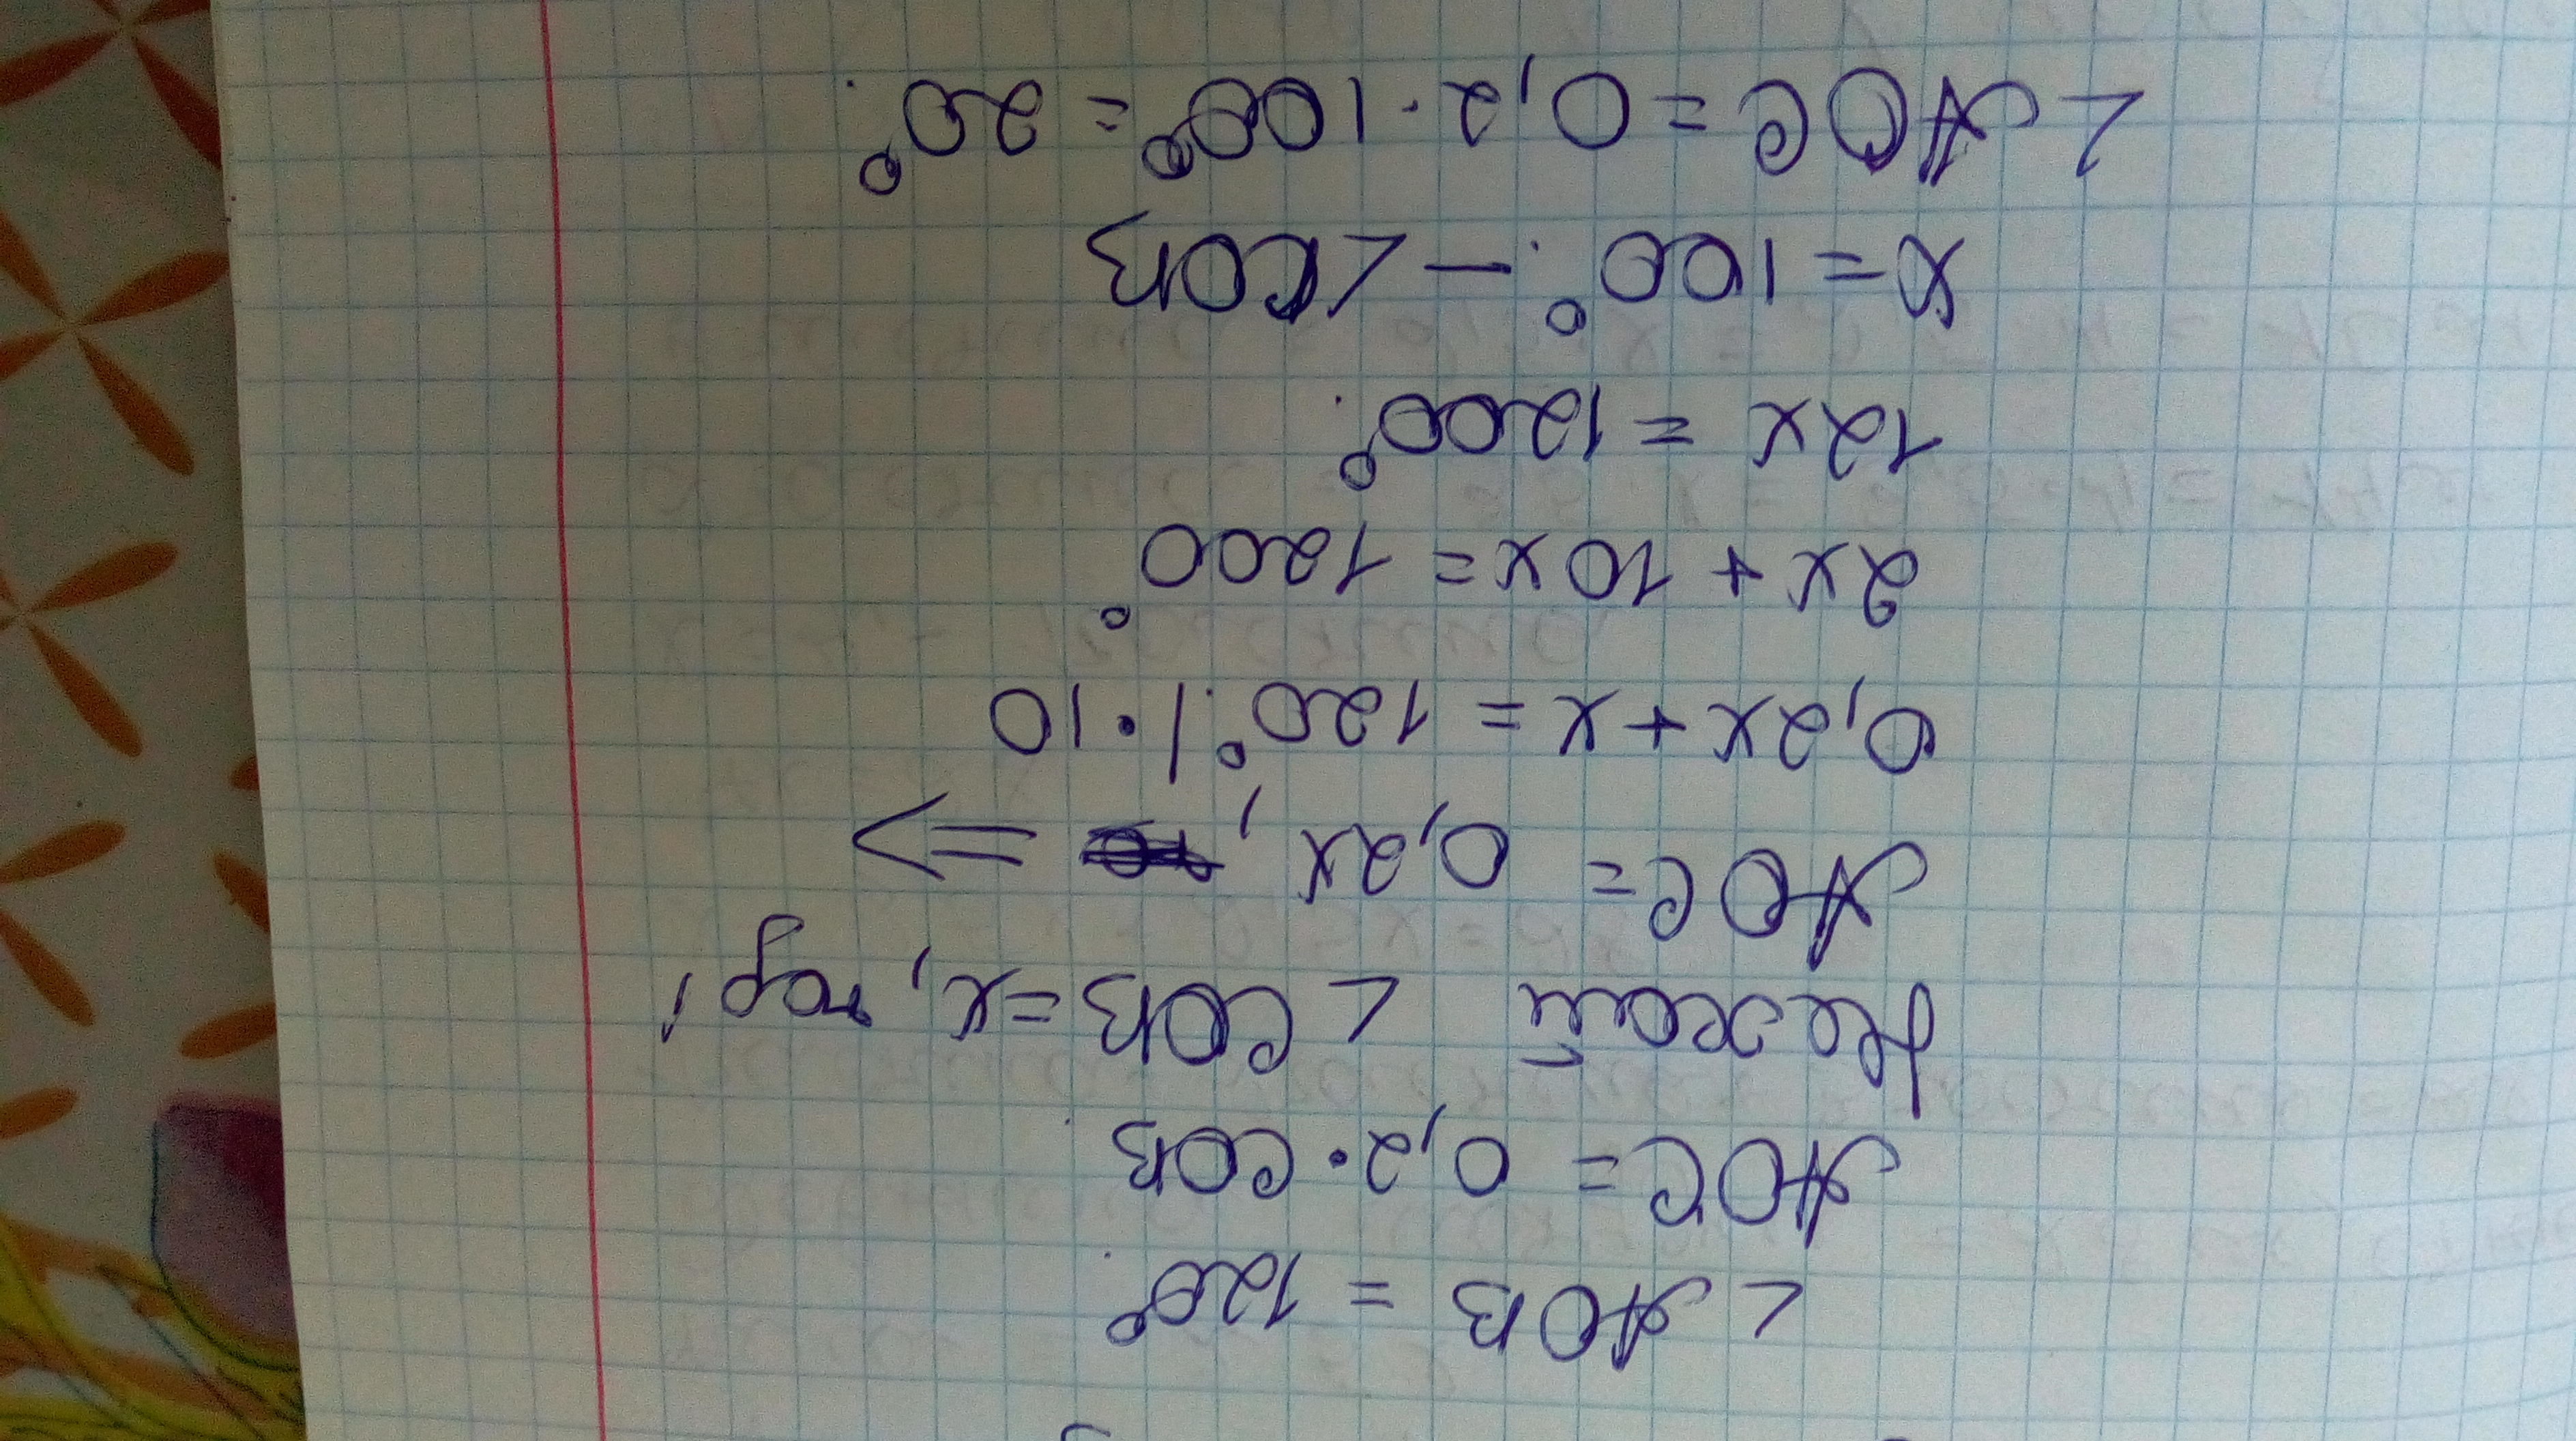 ∠AOB = 120°.
AOC = 0,2·COB.
Нехай ∠COB=x, тоді
AOC = 0,2x, =>
0,2x+x = 120°. | ·10
2x + 10x = 1200°
12x = 1200°.
x = 100°. – ∠COB
∠AOC = 0,2·100° = 20°.